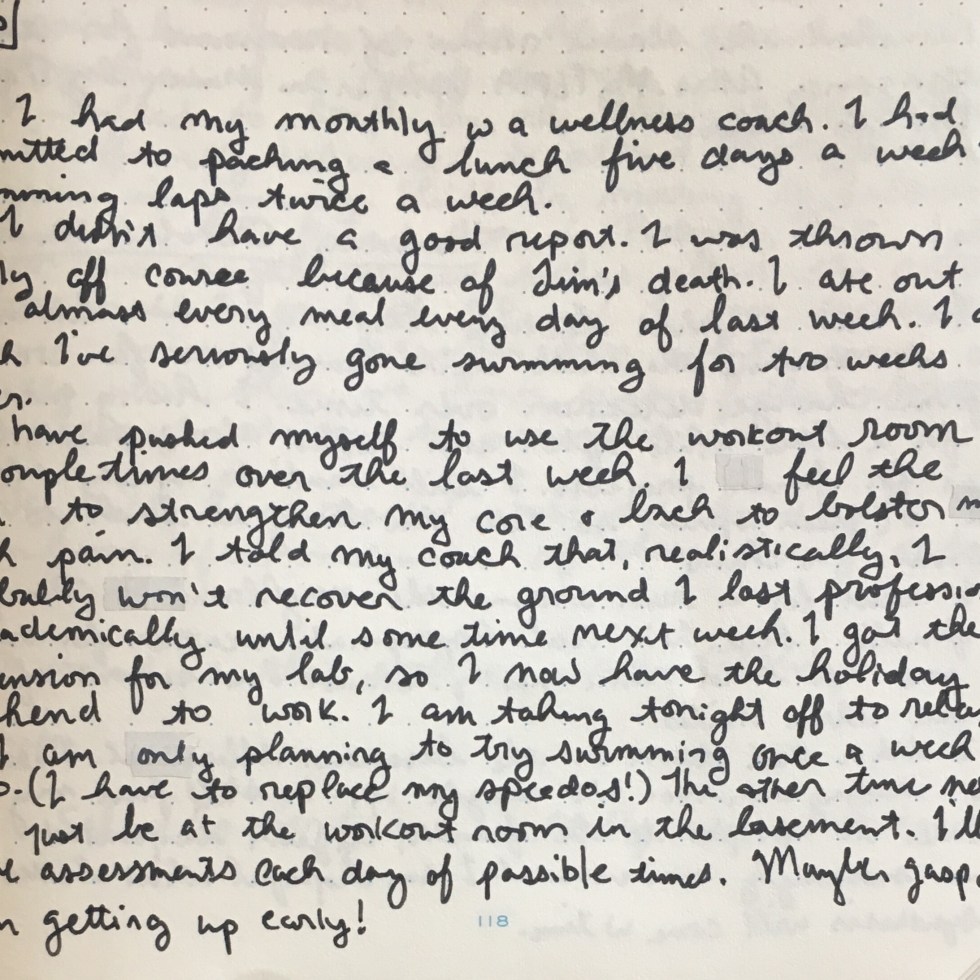 I had my monthly w a wellness coach. I had
mitted to packing a lunch five days a week
mming laps twice a week.
I didn't have a good report. I was thrown
ly off course because of Jim's death. I ate out
almost every meal every day of last week. I
I've seriously gone swimming for two weeks
er.
have pushed myself to use the workout room
ouple times over the last week. I feel the
to strengthen my core & back to bolster m
k pain. I told my coach that, realistically, I
bably won't recover the ground I lost professio
ademically until some time next week. I got the
ension for my lab, so I now have the holiday
kend to work. I am taking tonight off to relax
I am only planning to try swimming once a week
o. (I have to replace my speedos!) The other time
just be at the workout room in the basement. I'll
assessments each day of possible times. Maybe gasp
getting up early!
118